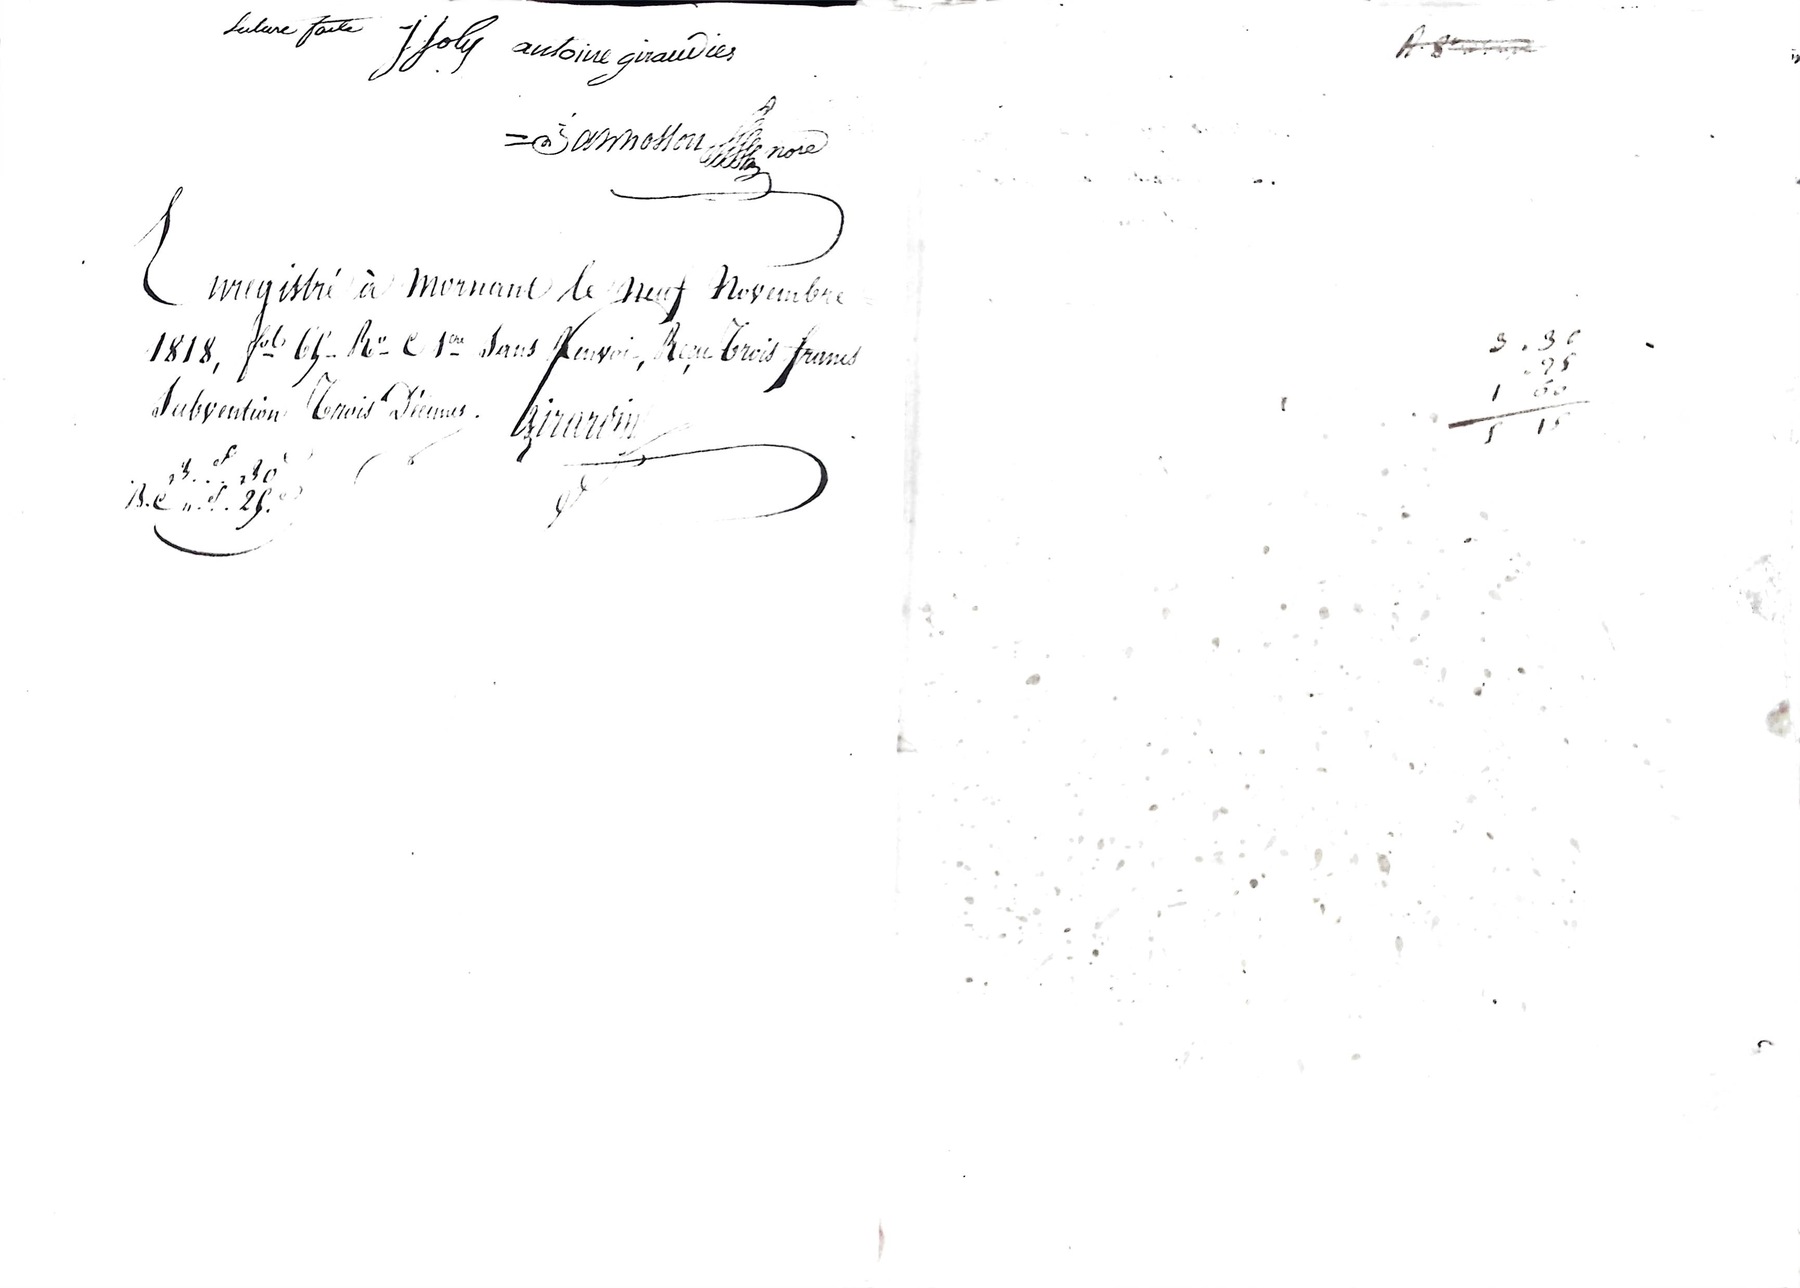 lecture faite J Joly antoine giraudier
nore
Enregistré à Mornant le neuf Novembre
1818, fol. 65 Ro. C 1ere Sans Renvoi, Reçu Trois francs
Subvention Trois Décimes. Girardin
3 . . . 30
B. C " . 25.
3 . 30
. 25
1 60
5 15